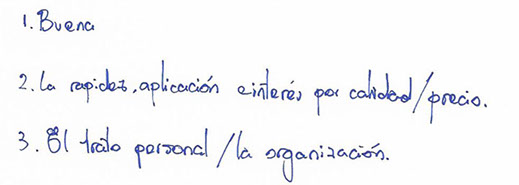 1. Buena
2. La rapidez, aplicación e interés por calidad/precio.
3. El trato personal/la organización.